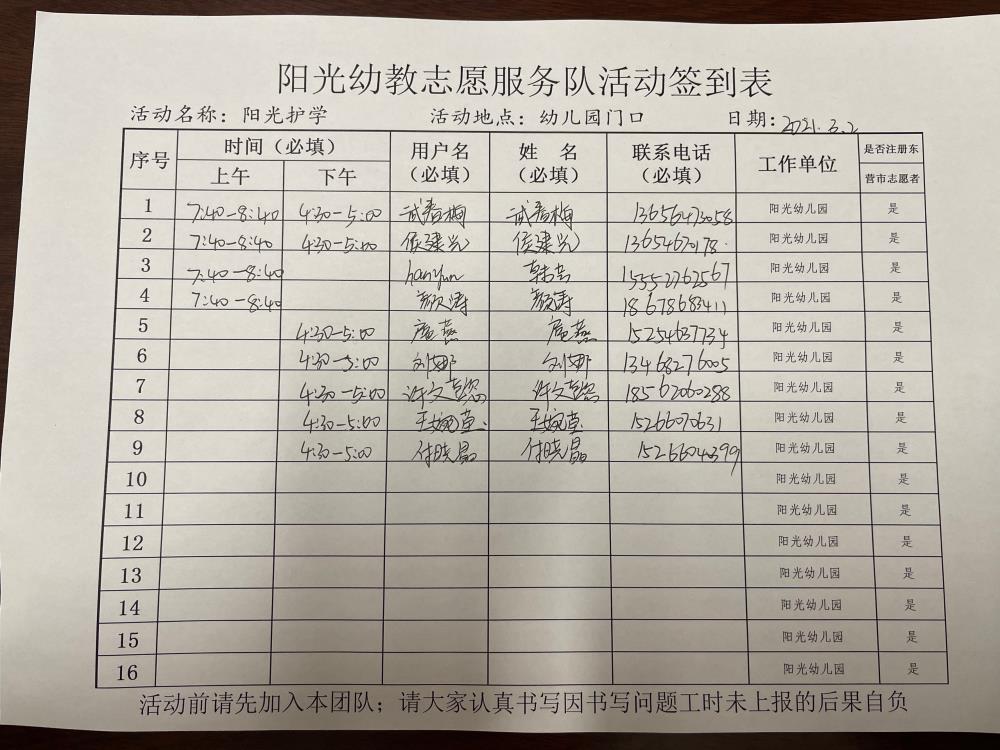 阳光幼教志愿服务队活动签到表
活动名称：阳光护学 活动地点：幼儿园门口 日期：2021.3.2
序号 时间（必填） 上午 下午 用户名（必填） 姓名（必填） 联系电话（必填） 工作单位 是否注册东营市志愿者
1 7:40-8:40 4:30-5:00 武春梅 武春梅 13656473058 阳光幼儿园 是
2 7:40-8:40 4:30-5:00 侯建光 侯建光 阳光幼儿园 是
3 7:40-8:40 hanyun 韩芸 15552762567 阳光幼儿园 是
4 7:40-8:40 颜涛 颜涛 18678683411 阳光幼儿园 是
5 4:30-5:00 燕 燕 15254637734 阳光幼儿园 是
6 4:30-5:00 刘娜 刘娜 13468276005 阳光幼儿园 是
7 4:30-5:00 许文 许文 18562060288 阳光幼儿园 是
8 4:30-5:00 王婉莹 王婉莹 15266070631 阳光幼儿园 是
9 4:30-5:00 付晓晶 付晓晶 15266042399 阳光幼儿园 是
10 阳光幼儿园 是
11 阳光幼儿园 是
12 阳光幼儿园 是
13 阳光幼儿园 是
14 阳光幼儿园 是
15 阳光幼儿园 是
16 阳光幼儿园 是
活动前请先加入本团队；请大家认真书写因书写问题工时未上报的后果自负